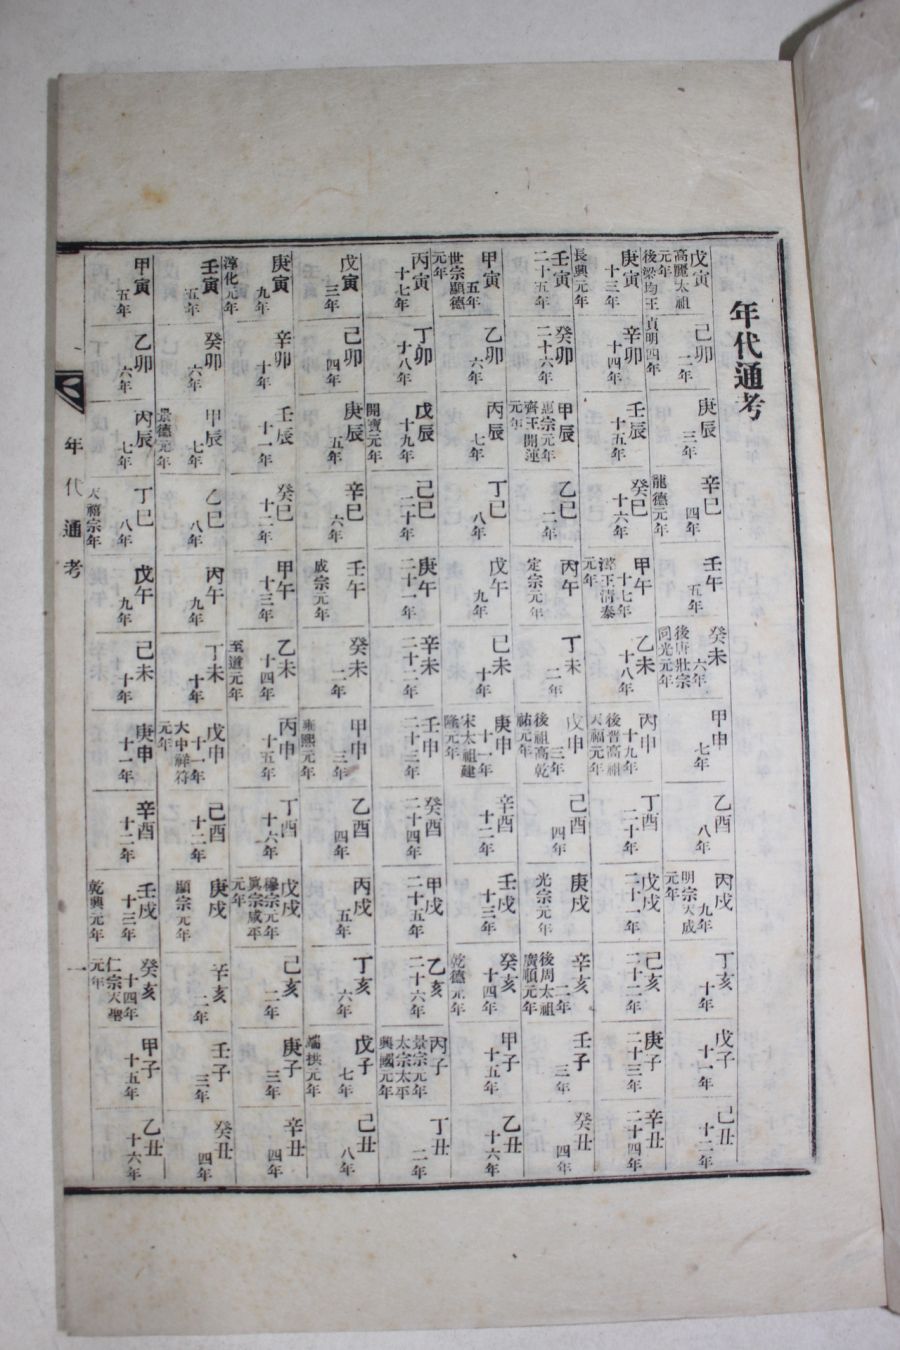 年代通考
戊寅
高麗太祖
元年
後梁均王貞明四年
己卯
二年
庚辰
三年
辛巳
四年
龍德元年
壬午
五年
癸未
六年
後唐壯宗
同光元年
甲申
七年
乙酉
八年
丙戌
九年
明宗天成
元年
丁亥
十年
戊子
十一年
己丑
十二年
庚寅
十三年
長興元年
辛卯
十四年
壬辰
十五年
癸巳
十六年
甲午
十七年
潞王清泰
元年
乙未
十八年
丙申
十九年
後晋高祖
天福元年
丁酉
二十年
戊戌
二十一年
己亥
二十二年
庚子
二十三年
辛丑
二十四年
壬寅
二十五年
癸卯
二十六年
甲辰
惠宗元年
齊王開運
元年
乙巳
二年
丙午
定宗元年
丁未
二年
戊申
三年
後祖高乾
祐元年
己酉
四年
庚戌
光宗元年
辛亥
二年
後周太祖
廣順元年
壬子
三年
癸丑
四年
甲寅
五年
世宗顯德
元年
乙卯
六年
丙辰
七年
丁巳
八年
戊午
九年
己未
十年
庚申
十一年
宋太祖建
隆元年
辛酉
十二年
壬戌
十三年
癸亥
十四年
乾德元年
甲子
十五年
乙丑
十六年
丙寅
十七年
丁卯
十八年
戊辰
十九年
開寶元年
己巳
二十年
庚午
二十一年
辛未
二十二年
壬申
二十三年
癸酉
二十四年
甲戌
二十五年
乙亥
二十六年
丙子
景宗元年
太宗太平
興國元年
丁丑
二年
戊寅
三年
己卯
四年
庚辰
五年
辛巳
六年
壬午
成宗元年
癸未
二年
甲申
三年
雍熙元年
乙酉
四年
丙戌
五年
丁亥
六年
戊子
七年
端拱元年
己丑
八年
庚寅
九年
淳化元年
辛卯
十年
壬辰
十一年
癸巳
十二年
甲午
十三年
乙未
十四年
至道元年
丙申
十五年
丁酉
十六年
戊戌
穆宗元年
眞宗咸平
元年
己亥
二年
庚子
三年
辛丑
四年
壬寅
五年
癸卯
六年
甲辰
七年
景德元年
乙巳
八年
丙午
九年
丁未
十年
戊申
十一年
大中祥符
元年
己酉
十二年
庚戌
顯宗元年
辛亥
二年
壬子
三年
癸丑
四年
甲寅
五年
乙卯
六年
丙辰
七年
丁巳
八年
天禧宗年
戊午
九年
己未
十年
庚申
十一年
辛酉
十二年
壬戌
十三年
乾興元年
癸亥
十四年
仁宗天聖
元年
甲子
十五年
乙丑
十六年
年代通考
一